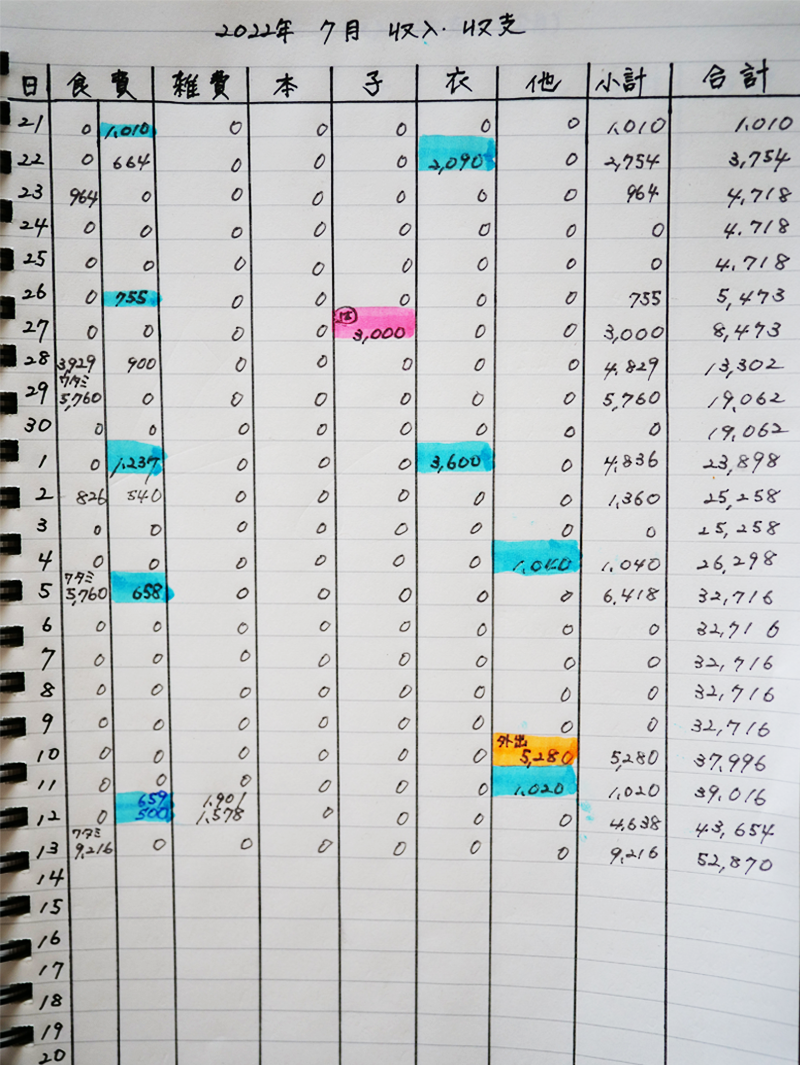 2022年 7月 収入・収支
日 食費 雑費 本 子 衣 他 小計 合計
21 0 1,010 0 0 0 0 0 1,010 1,010
22 0 664 0 0 0 2,090 0 2,754 3,754
23 964 0 0 0 0 0 0 964 4,718
24 0 0 0 0 0 0 0 0 4.718
25 0 0 0 0 0 0 0 0 4.718
26 0 755 0 0 0 0 0 755 5,473
27 0 0 0 0 3,000 0 0 3,000 8,473
28 3,929 900 0 0 0 0 0 4,829 13,302
ワタミ
29 5,760 0 0 0 0 0 0 5,760 19,062
30 0 0 0 0 0 0 0 0 19,062
1 0 1,237 0 0 0 3,600 0 4,836 23,898
2 826 540 0 0 0 0 0 1,360 25,258
3 0 0 0 0 0 0 0 0 25,258
4 0 0 0 0 0 0 1,040 1,040 26,298
ワタミ
5 5,760 658 0 0 0 0 0 6,418 32,716
6 0 0 0 0 0 0 0 0 32,716
7 0 0 0 0 0 0 0 0 32,716
8 0 0 0 0 0 0 0 0 32,716
9 0 0 0 0 0 0 0 0 32,716
外出
10 0 0 0 0 0 0 5,280 5,280 37,996
11 0 0 0 0 0 0 1,020 1,020 39,016
659 1,901
12 0 500 1,578 0 0 0 0 4,638 43,654
ワタミ
13 9,216 0 0 0 0 0 0 9,216 52,870
14
15
16
17
18
19
20